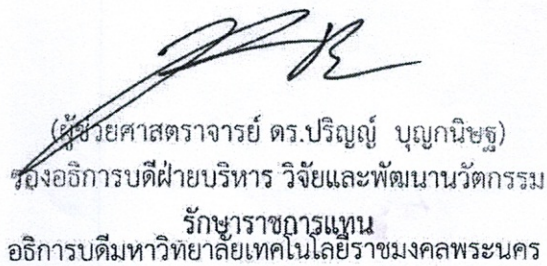 (ผู้ช่วยศาสตราจารย์ ดร.ปริญญ์ บุญกนิษฐ)
รองอธิการบดีฝ่ายบริหาร วิจัยและพัฒนานวัตกรรม
รักษาราชการแทน
อธิการบดีมหาวิทยาลัยเทคโนโลยีราชมงคลพระนคร